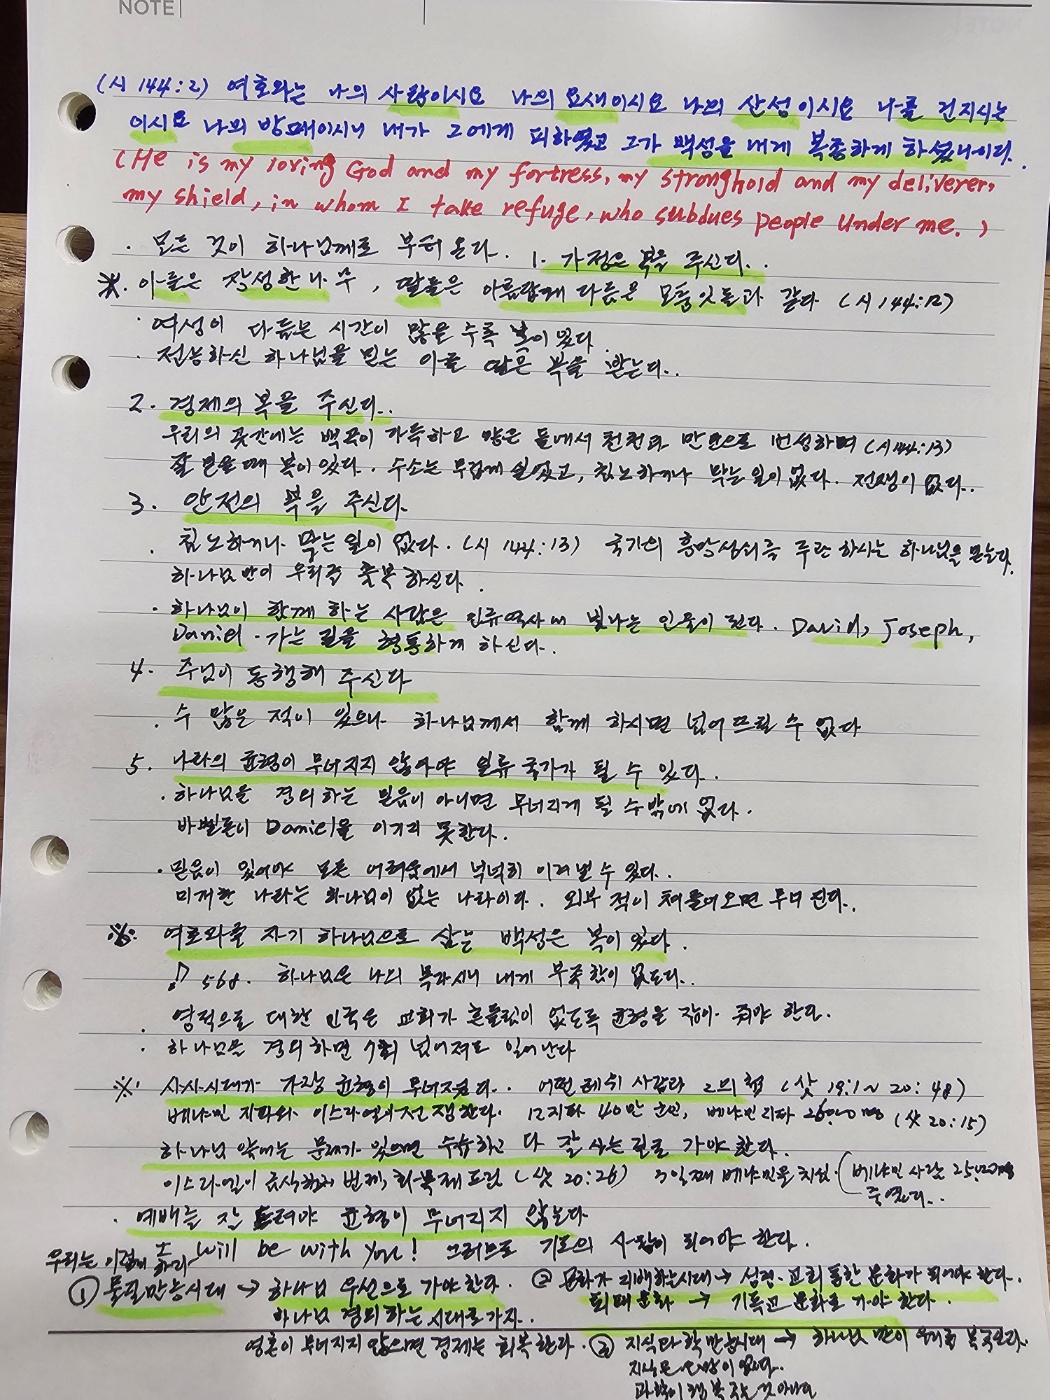 NOTE
(시 144:2) 여호와는 나의 사랑이시요 나의 요새이시요 나의 산성이시요 나를 건지시는
이시요 나의 방패이시니 내가 그에게 피하였고 그가 백성을 내게 복종하게 하셨나이다.
(He is my loving God and my fortress, my stronghold and my deliverer,
my shield, in whom I take refuge, who subdues people under me.)
· 모든 것이 하나님께로 부터 온다. 1. 가정은 복을 주신다..
※. 아들은 장성한 나무, 딸들은 아름답게 다듬은 모퉁잇돌과 같다 (시 144:12)
· 여성이 다듬는 시간이 많을 수록 복이 있다.
· 전능하신 하나님을 믿는 이들 많은 복을 받는다..
2. 경제의 복을 주신다..
우리의 곳간에는 백곡이 가득하고 양은 들에서 천천과 만만으로 번성하며 (시 144:13)
잘 믿을 때 복이 있다. 수소는 무겁게 실었고, 침노하거나 막는 일이 없다. 전쟁이 없다..
3. 안전의 복을 주신다.
. 침노하거나 막는 일이 없다. (시 144:13) 국가의 흥망성쇠를 주관 하시는 하나님을 믿는다.
하나님 만이 우리를 축복 하신다.
· 하나님이 함께 하는 사람은 인류역사에 빛나는 인물이 된다. David, Joseph,
Daniel. 가는 길을 형통하게 하신다.
4. 주님이 동행해 주신다
. 수 많은 적이 있으나 하나님께서 함께 하시면 넘어뜨릴 수 없다
5. 나라의 균형이 무너지지 않아야 일류 국가가 될 수 있다.
· 하나님을 경외하는 믿음이 아니면 무너지게 될 수밖에 없다.
바벨론이 Daniel을 이기지 못한다.
· 믿음이 있어야 모든 어려움에서 넉넉히 이겨낼 수 있다.
미개한 나라는 하나님이 없는 나라이다. 외부 적이 쳐들어오면 무너진다.
※ 여호와를 자기 하나님으로 삼는 백성은 복이 있다.
♪ 568. 하나님은 나의 목자시니 내게 부족함이 없도다..
영적으로 대한민국은 교회가 흔들림이 없도록 균형을 잡아 줘야 한다.
· 하나님을 경외하면 7회 넘어져도 일어난다
※ 사사시대가 가장 균형이 무너졌다.. 어떤 레위 사람과 그의 첩 (삿 19:1~20:48)
베냐민 지파와 이스라엘이 전쟁한다. 12지파 40만 군인, 베냐민지파 26,000명 (삿 20:15)
하나님 앞에는 문제가 있으면 수습하고 다 잘 사는 길로 가야 한다.
이스라엘이 금식하며 번제, 화목제 드림 (삿 20:26) 3일째 베냐민을 치심. (베냐민 사람 25,000명
죽였다..
· 예배는 잘 드려야 균형이 무너지지 않는다
우리는 이렇게 will be with you! 그러므로 기도의 사람이 되어야 한다.
① 물질만능시대 → 하나님 우선으로 가야 한다. ② 문화가 지배하는시대 → 성경. 교회 통한 문화가 되어야 한다.
하나님 경외하는 시대로 가자. 퇴폐문화 → 기독교 문화로 가야 한다.
영혼이 무너지지 않으면 경제는 회복한다. ③ 지식과학 만능시대 → 하나님 만이
지식은 소망이 없다.
과학이 행복 주는 것 아니다